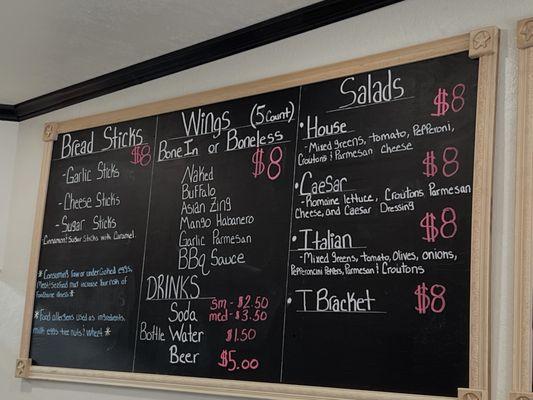 Bread Sticks
$8
- Garlic Sticks
- Cheese Sticks
- Sugar Sticks
Cinnamon & Sugar Sticks with Caramel
*Food allergens used as ingredients
milk eggs tree nuts & wheat*
Wings (5 Count)
Bone In or Boneless
$8
Naked
Buffalo
Asian Zing
Mango Habanero
Garlic Parmesan
BBQ Sauce
DRINKS
Soda sm - $2.50
med - $3.50
Bottle Water $1.50
Beer $5.00
Salads
• House $8
- Mixed greens, tomato, Pepperoni,
Croutons & Parmesan Cheese
• Caesar $8
- Romaine lettuce, Croutons Parmesan
Cheese, and Caesar Dressing
• Italian $8
- Mixed greens, tomato, olives, onions,
Pepperoncini Peppers, Parmesan & Croutons
• T Bracket $8